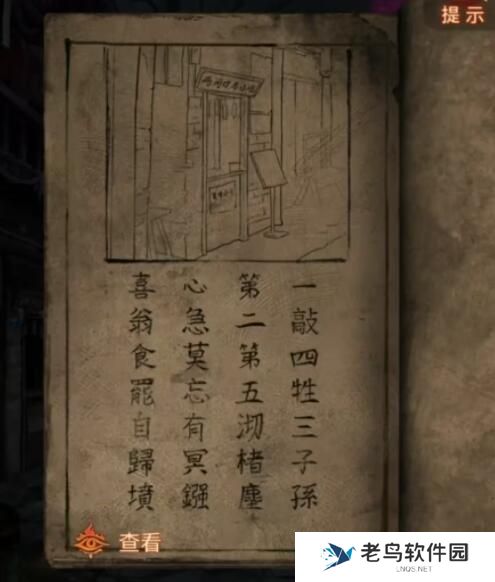 提示
一敲四牲三子孫
第二第五沏楮塵
心急莫忘有冥鏹
喜翁食罷自歸墳
查看
老鸟软件园
LNQS.NET